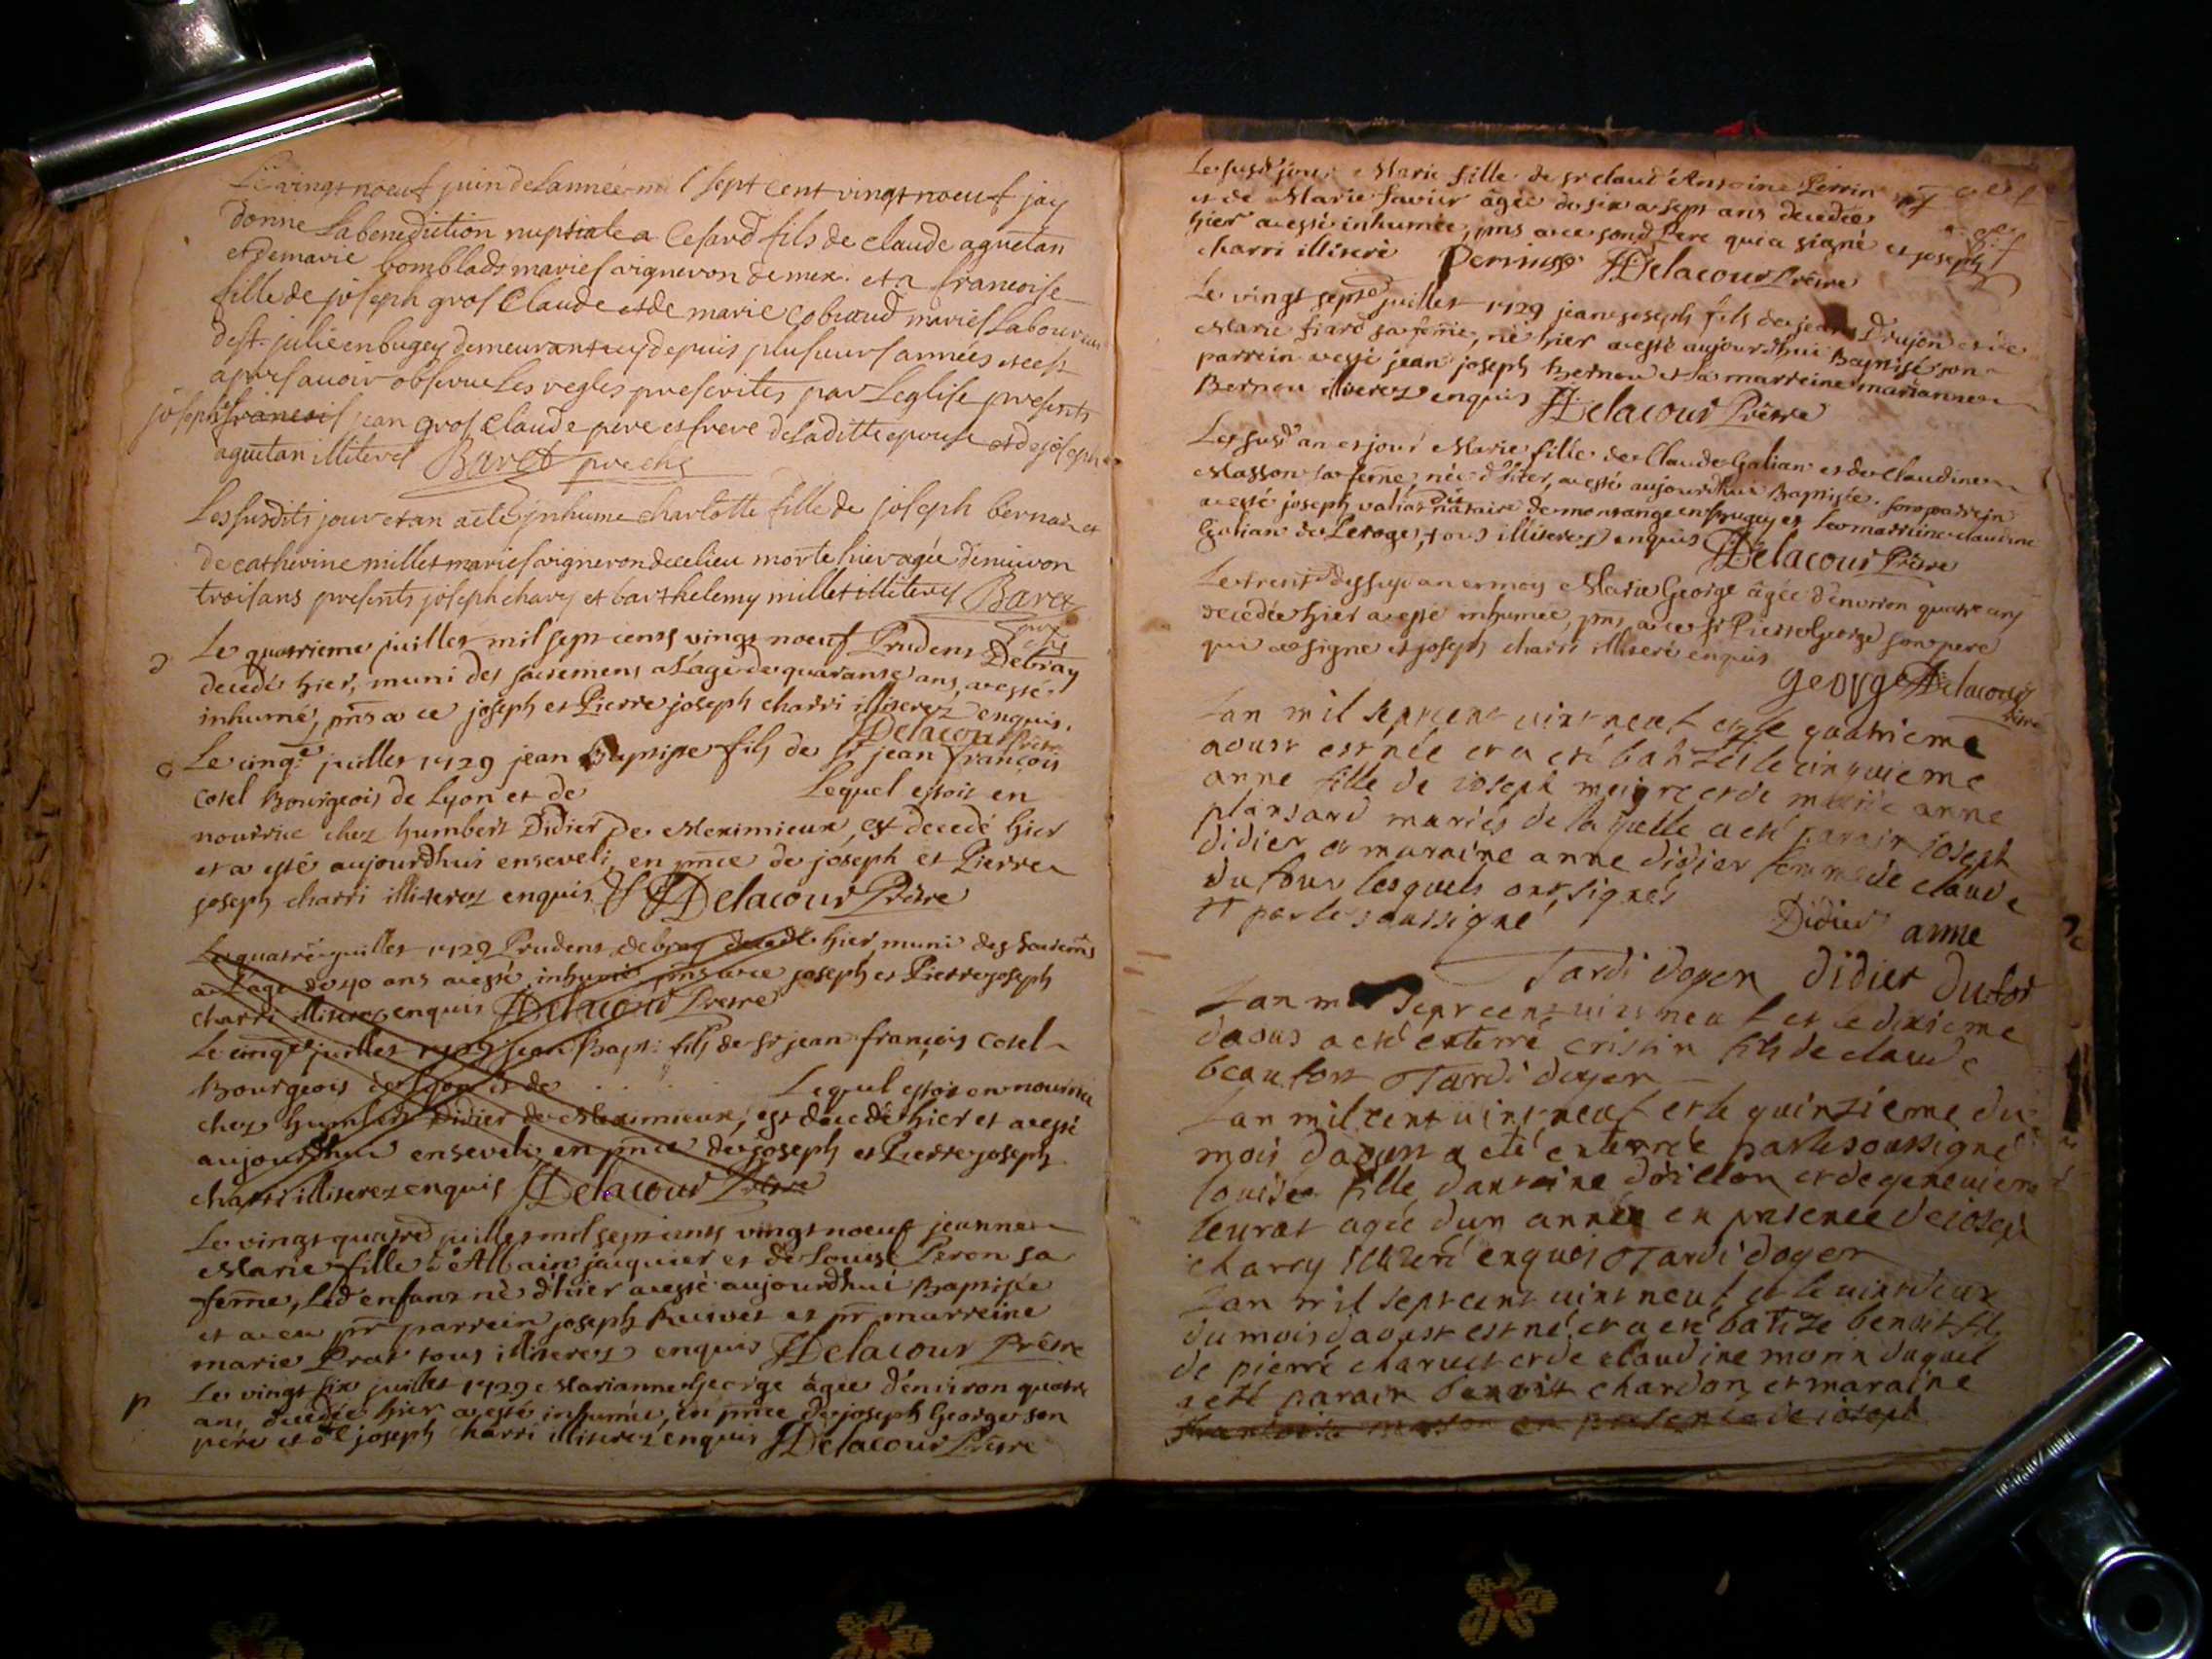 Le vingt noeuf juin de Lannée mil sept cent vingt noeuf jay
donne La benediction nuptiale a Cesard fils de Claude aguetan
et de marie bomblads maries vigneron de mex. et a francoise
fille de joseph gros Claude et de marie maries Laboureur
de st. julie en bugey demeurant icy depuis plusieurs années et ce
apres auoir obserue Les regles prescrites par Leglise presents
joseph francois jean gros Claude pere et frere de Laditte epouse et de joseph
aguetan illiteres Baret
Les susdits jour et an a eté inhume charlotte fille de joseph bernard et
de catherine millet maries vigneron de ce lieu morte hier agée denuiron
trois ans presents joseph chary et barthelemy millet illiteres Baret
Le quatrieme juillet mil sept cents vingt noeuf Prudent Debray
decedé hier, muni des sacremens a l'age de quarante ans, a esté
inhumé, pnts a ce joseph et Pierre joseph charri illiterez enquis.
Delacour Prêtre
Le cinqe juillet 1729 jean Baptiste fils de Sr jean françois
Cotel Bourgeois de Lyon et de Lequel estoit en
nourrice chez humbert Didier de Meximieux, est decedé hier
et a esté aujourdhui enseveli, en pnce de joseph et Pierre
joseph charri illiterez enquis Delacour Prêtre
Le quatre juillet 1729 Prudent debray decedé hier, muni des sacremts
a l'age de 40 ans a esté inhumé pnts a ce joseph et Pierre joseph
charri illiterez enquis Delacour Prêtre
Le cinqe juillet 1729 jean Bapt: fils de Sr jean françois Cotel
Bourgeois de Lyon et de . . . . . Lequel estoit en nourrice
chez humbert Didier de Meximieux, est decedé hier et a esté
aujourdhui enseveli, en pnce de joseph et Pierre joseph
charri illiterez enquis Delacour Prêtre
Le vingt quatre juillet mil sept cents vingt noeuf jeanne
Marie fille d'Albain jacquier et de Louise Peron sa
feme, led enfant né d'hier a esté aujourdhui Baptisée
et a eu pr parrein joseph Ruivet et pr marreine
marie Prat tous illiterez enquis Delacour Prêtre
Le vingt six juillet 1729 Marianne George âgée d'environ quatre
ans, decedée hier a esté inhumée, en pnce de joseph George son
pére et de joseph charri illiterez enquis Delacour Prêtre
Le susd jour Marie fille de Sr claud' Antoine Perrin
et de Marie Favier âgée de six a sept ans decedée
hier a esté inhumée, pnts a ce sond Pere qui a signé et joseph
charri illiteré Perrin Delacour Prêtre
Le vingt sept juillet 1729 jean joseph fils de jean Drujon et de
Marie fiard sa feme, né hier a esté aujourdhui Baptisé son
parrein a esté jean joseph Bernou et sa marreine marianne
Bernou illiterez enquis Delacour Prêtre
Les susd an et jour Marie fille de Claude Galian et de Claudine
Masson sa feme, née d'hier, a esté aujourdhui Baptisée. son parrein
a esté joseph notaire de en Bugey et la marreine claudine
Galian de Peroges, tous illiterez enquis Delacour Prêtre
Le trente dessus an et mois Marie George âgée d'environ quatre ans
decedée hier a esté inhumée, pnts a ce Sr Pierre George son pere
qui a signé et joseph charri illiteré enquis
george Delacour Prêtre
Lan mil sept cent vint neuf et le quatrieme
aoust est née et a eté batisée le cinquieme
anne fille de joseph meigre et de marie anne
plansard mariés de laquelle a eté parain joseph
didier et maraine anne didier femme de claude
dufour lesquels ont signés
et par le soussigné Didier anne
Tardi doyen didier dufor
Lan mil sept cent vint neuf et le dixieme
daous a eté enterré cristin fils de claude
beaufort Tardi doyen
Lan mil cent vint neuf et le quinzieme du
mois daoust a eté enterrée par le soussigné
louise fille dantoine doillon et de genevieve
leurat agée dun année en presence de josep
charry illiteré enquis Tardi doyen
Lan mil sept cent vint neuf et le vint deux
du mois daoust est né et a eté batize benoit fils
de pierre charuet et de claudine morin duquel
a eté parain benoit chardon et maraine
francoise en presence de joseph